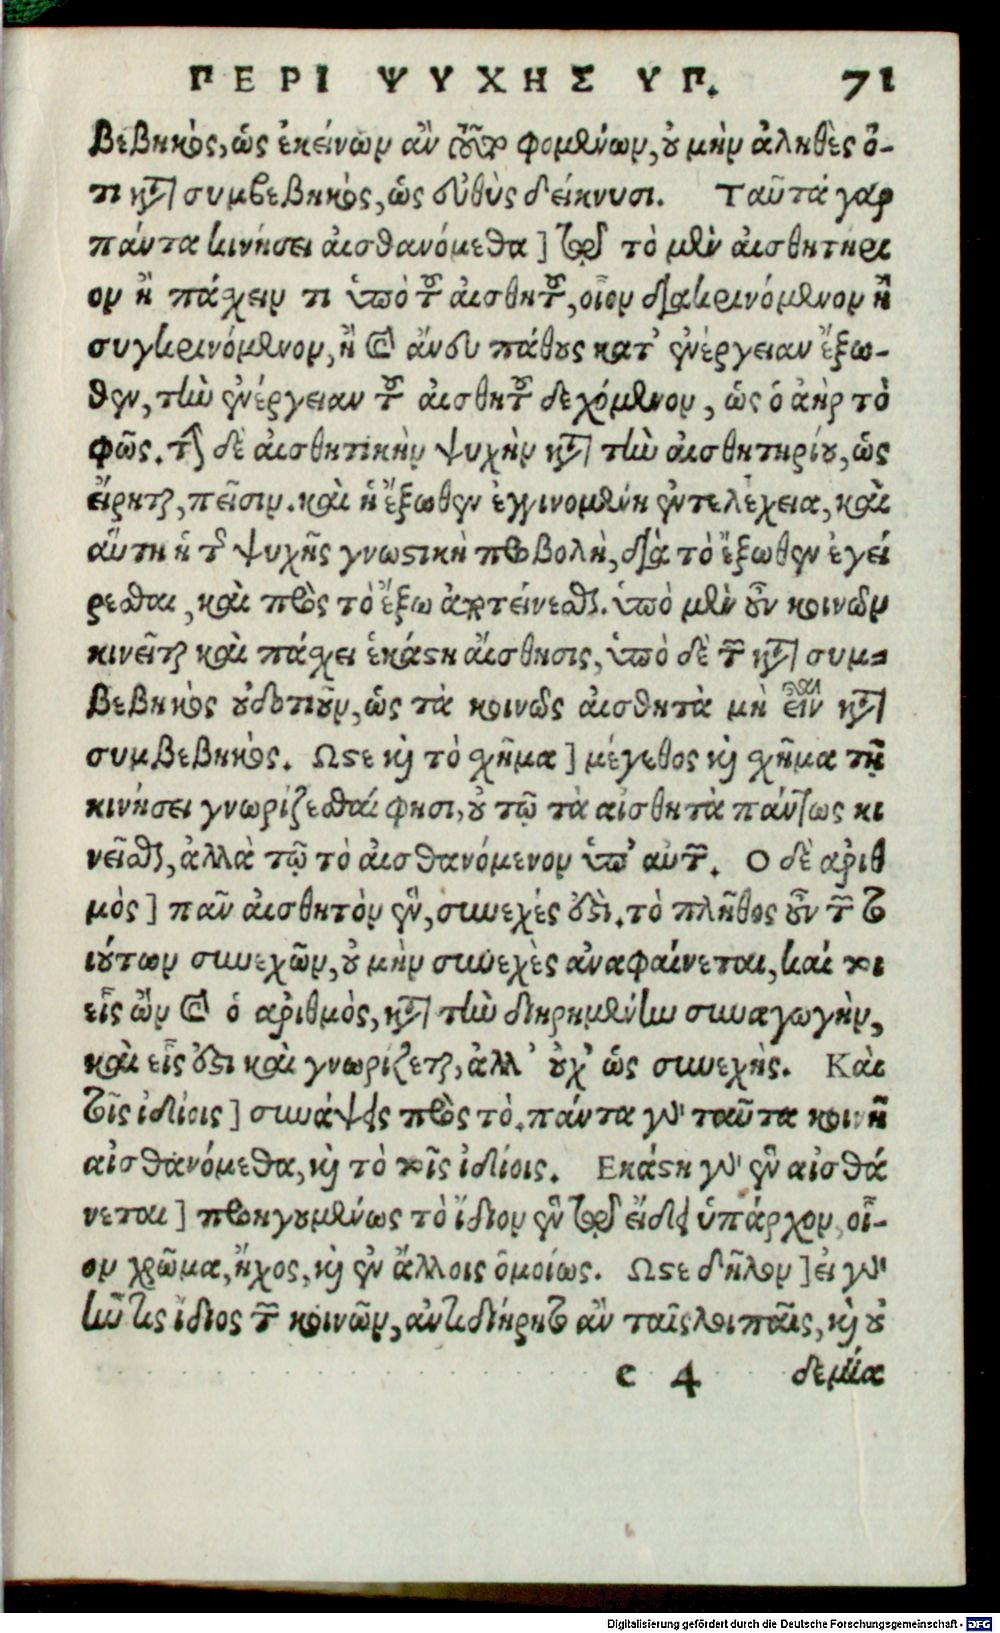 ΠΕΡΙ ΨΥΧΗΣ ΥΠ. 71
βεβηκὸς, ὡς ἐκείνων ἂν φομένων, οὐ μὴν ἀληθὲς ὅ-
τι κατὰ συμβεβηκὸς, ὡς εὐθὺς δείκνυσι. Ταῦτα γὰρ
πάντα κινήσει αἰσθανόμεθα] τὸ μὲν αἰσθητήρι
ον ἢ πάσχειν τι ὑπὸ τοῦ αἰσθητοῦ, οἷον διακρινόμενον ἢ
συγκρινόμενον, ἢ καὶ ἄνευ πάθους κατ' ἐνέργειαν ἔξω-
θεν, τὴν ἐνέργειαν τοῦ αἰσθητοῦ δεχόμενον, ὡς ὁ ἀὴρ τὸ
φῶς. τὴν δὲ αἰσθητικὴν ψυχὴν κατὰ τὴν αἰσθητηρίου, ὡς
εἴρηται, πεῖσιν. καὶ ἡ ἔξωθεν ἐγγινομένη ἐντελέχεια, καὶ
αὕτη ἡ τῆς ψυχῆς γνωστικὴ προβολὴ, διὰ τὸ ἔξωθεν ἐγεί
ρεσθαι, καὶ πρὸς τὸ ἔξω ἀποτείνεσθαι. ὑπὸ μὲν οὖν κοινῶν
κινεῖται καὶ πάσχει ἑκάστη αἴσθησις, ὑπὸ δὲ τῶν κατὰ συμ-
βεβηκὸς οὐδοτιοῦν, ὡς τὰ κοινῶς αἰσθητὰ μὴ εἶναι κατὰ
συμβεβηκός. Ὥστε καὶ τὸ σχῆμα] μέγεθος καὶ σχῆμα τῇ
κινήσει γνωρίζεσθαί φησι, οὐ τῷ τὰ αἰσθητὰ πάντως κι
νεῖσθαι, ἀλλὰ τῷ τὸ αἰσθανόμενον ὑπ' αὐτῶν. Ὁ δὲ ἀριθ
μὸς] πᾶν αἰσθητὸν ἓν, συνεχές ἐστι. τὸ πλῆθος οὖν τῶν το
ιούτων συνεχῶν, οὐ μὴν συνεχὲς ἀναφαίνεται, καί τοι
εἷς ὢν καὶ ὁ ἀριθμὸς, κατὰ τὴν διηρημένην συναγωγὴν,
καὶ εἷς ἐστι καὶ γνωρίζεται, ἀλλ' οὐχ ὡς συνεχής. Καὶ
τοῖς ἰδίοις] συνάψεις πρὸς τὸ. πάντα γὰρ ταῦτα κοινῇ
αἰσθανόμεθα, καὶ τὸ τοῖς ἰδίοις. Ἑκάστη γὰρ ἓν αἰσθά
νεται] προηγουμένως τὸ ἴδιον ἓν εἴδει ὑπάρχον, οἷ-
ον χρῶμα, ἦχος, καὶ ἐν ἄλλοις ὁμοίως. Ὥστε δῆλον] εἰ γὰρ
ἦν τις ἴδιος τῶν κοινῶν, ἀντιδιῄρητο ἂν ταῖς λοιπαῖς, καὶ οὐ
c 4 δεμία
Digitalisierung gefördert durch die Deutsche Forschungsgemeinschaft - DFG